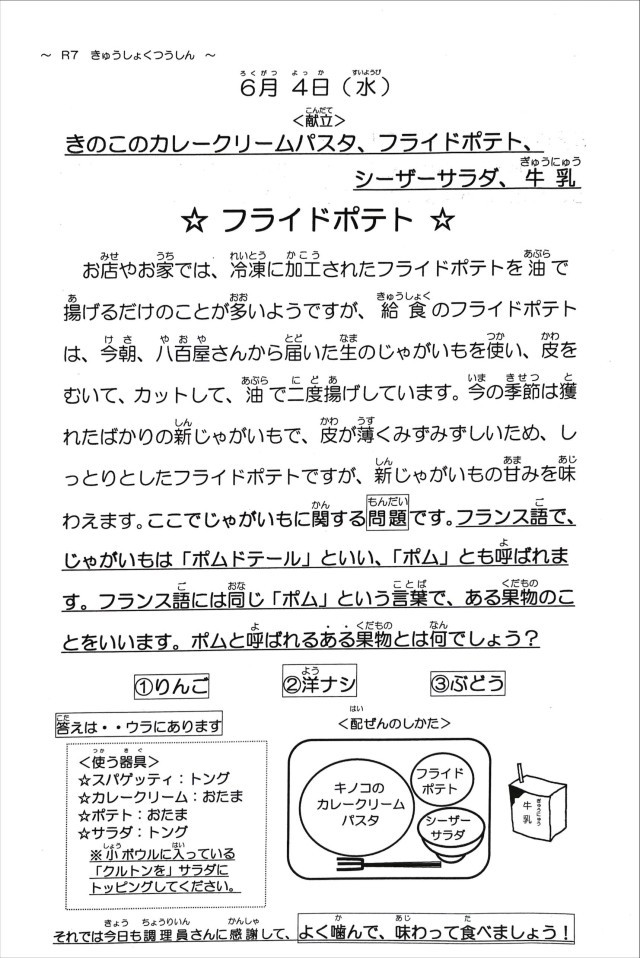 ～ R7 きゅうしょくつうしん ～
6月 4日（水）
＜献立＞
きのこのカレークリームパスタ、フライドポテト、
シーザーサラダ、牛乳
☆ フライドポテト ☆
お店やお家では、冷凍に加工されたフライドポテトを油で
揚げるだけのことが多いようですが、給食のフライドポテト
は、今朝、八百屋さんから届いた生のじゃがいもを使い、皮を
むいて、カットして、油で二度揚げしています。今の季節は獲
れたばかりの新じゃがいもで、皮が薄くみずみずしいため、し
っとりとしたフライドポテトですが、新じゃがいもの甘みを味
わえます。ここでじゃがいもに関する問題です。フランス語で、
じゃがいもは「ポムドテール」といい、「ポム」とも呼ばれま
す。フランス語には同じ「ポム」という言葉で、ある果物のこ
とをいいます。ポムと呼ばれるある果物とは何でしょう？
①りんご ②洋ナシ ③ぶどう
答えは・・ウラにあります
＜使う器具＞
☆スパゲッティ：トング
☆カレークリーム：おたま
☆ポテト：おたま
☆サラダ：トング
※小ボウルに入っている
「クルトンを」サラダに
トッピングしてください。
＜配ぜんのしかた＞
キノコの
カレークリーム
パスタ
フライド
ポテト
シーザー
サラダ
牛乳
それでは今日も調理員さんに感謝して、よく噛んで、味わって食べましょう！